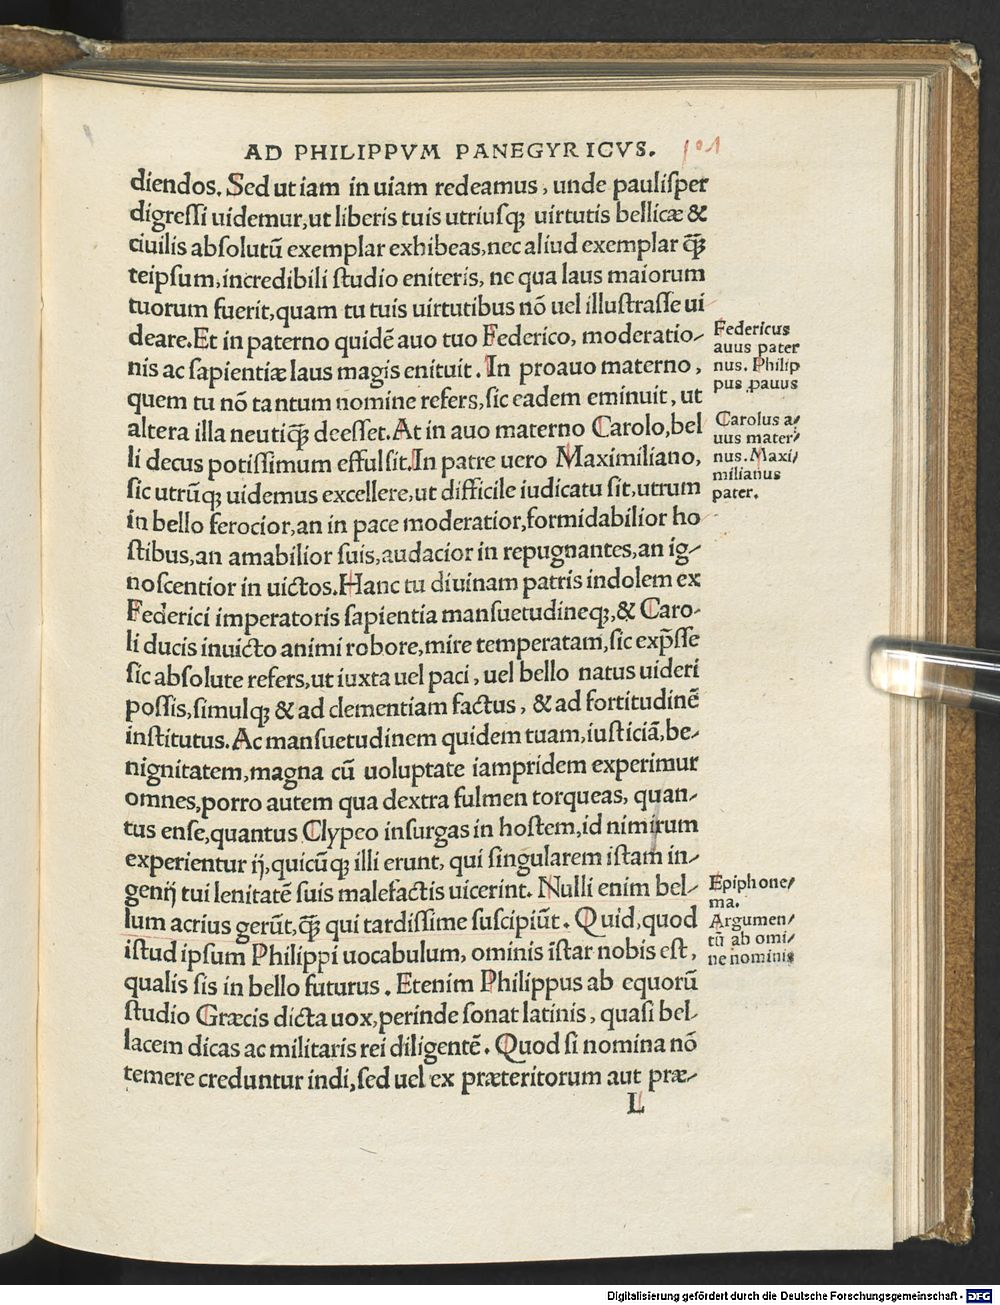 AD PHILIPPVM PANEGYRICVS. 101
diendos. Sed ut iam in uiam redeamus, unde pauliſper
digreſſi uidemur, ut liberis tuis utriuſqꝫ uirtutis bellicæ &
ciuilis abſolutū exemplar exhibeas, nec aliud exemplar q̄ꝫ
teipſum, incredibili ſtudio eniteris, ne qua laus maiorum
tuorum fuerit, quam tu tuis uirtutibus nō uel illuſtraſſe ui
deare. Et in paterno quidē auo tuo Federico, moderatio-
nis ac ſapientiæ laus magis enituit. In proauo materno,
quem tu nō tantum nomine refers, ſic eadem eminuit, ut
altera illa neutiq̄ꝫ deeſſet. At in auo materno Carolo, bel
li decus potiſſimum effulſit. In patre uero Maximiliano,
ſic utrūqꝫ uidemus excellere, ut difficile iudicatu ſit, utrum
in bello ferocior, an in pace moderatior, formidabilior ho
ſtibus, an amabilior ſuis, audacior in repugnantes, an ig-
noſcentior in uictos. Hanc tu diuinam patris indolem ex
Federici imperatoris ſapientia manſuetudineqꝫ, & Caro-
li ducis inuicto animi robore, mire temperatam, ſic exp̄ſſe
ſic abſolute refers, ut iuxta uel paci, uel bello natus uideri
poſſis, ſimulqꝫ & ad clementiam factus, & ad fortitudinē
inſtitutus. Ac manſuetudinem quidem tuam, iuſticiā, be-
nignitatem, magna cū uoluptate iampridem experimur
omnes, porro autem qua dextra fulmen torqueas, quan-
tus enſe, quantus Clypeo inſurgas in hoſtem, id nimirum
experientur ij, quicūqꝫ illi erunt, qui ſingularem iſtam in-
genij tui lenitatē ſuis malefactis uicerint. Nulli enim bel-
lum acrius gerūt, q̄ꝫ qui tardiſſime ſuſcipiūt. Quid, quod
iſtud ipſum Philippi uocabulum, ominis īſtar nobis eſt,
qualis ſis in bello futurus. Etenim Philippus ab equorū
ſtudio Græcis dicta uox, perinde ſonat latinis, quaſi bel-
lacem dicas ac militaris rei diligentē. Quod ſi nomina nō
temere creduntur indi, ſed uel ex præteritorum aut præ-
L
Federicus
auus pater
nus. Philip
pus ꝓauus
Carolus a-
uus mater-
nus. Maxi-
milianus
pater.
Epiphone-
ma.
Argumen-
tū ab omi-
ne nominis
Digitalisierung gefördert durch die Deutsche Forschungsgemeinschaft - DFG